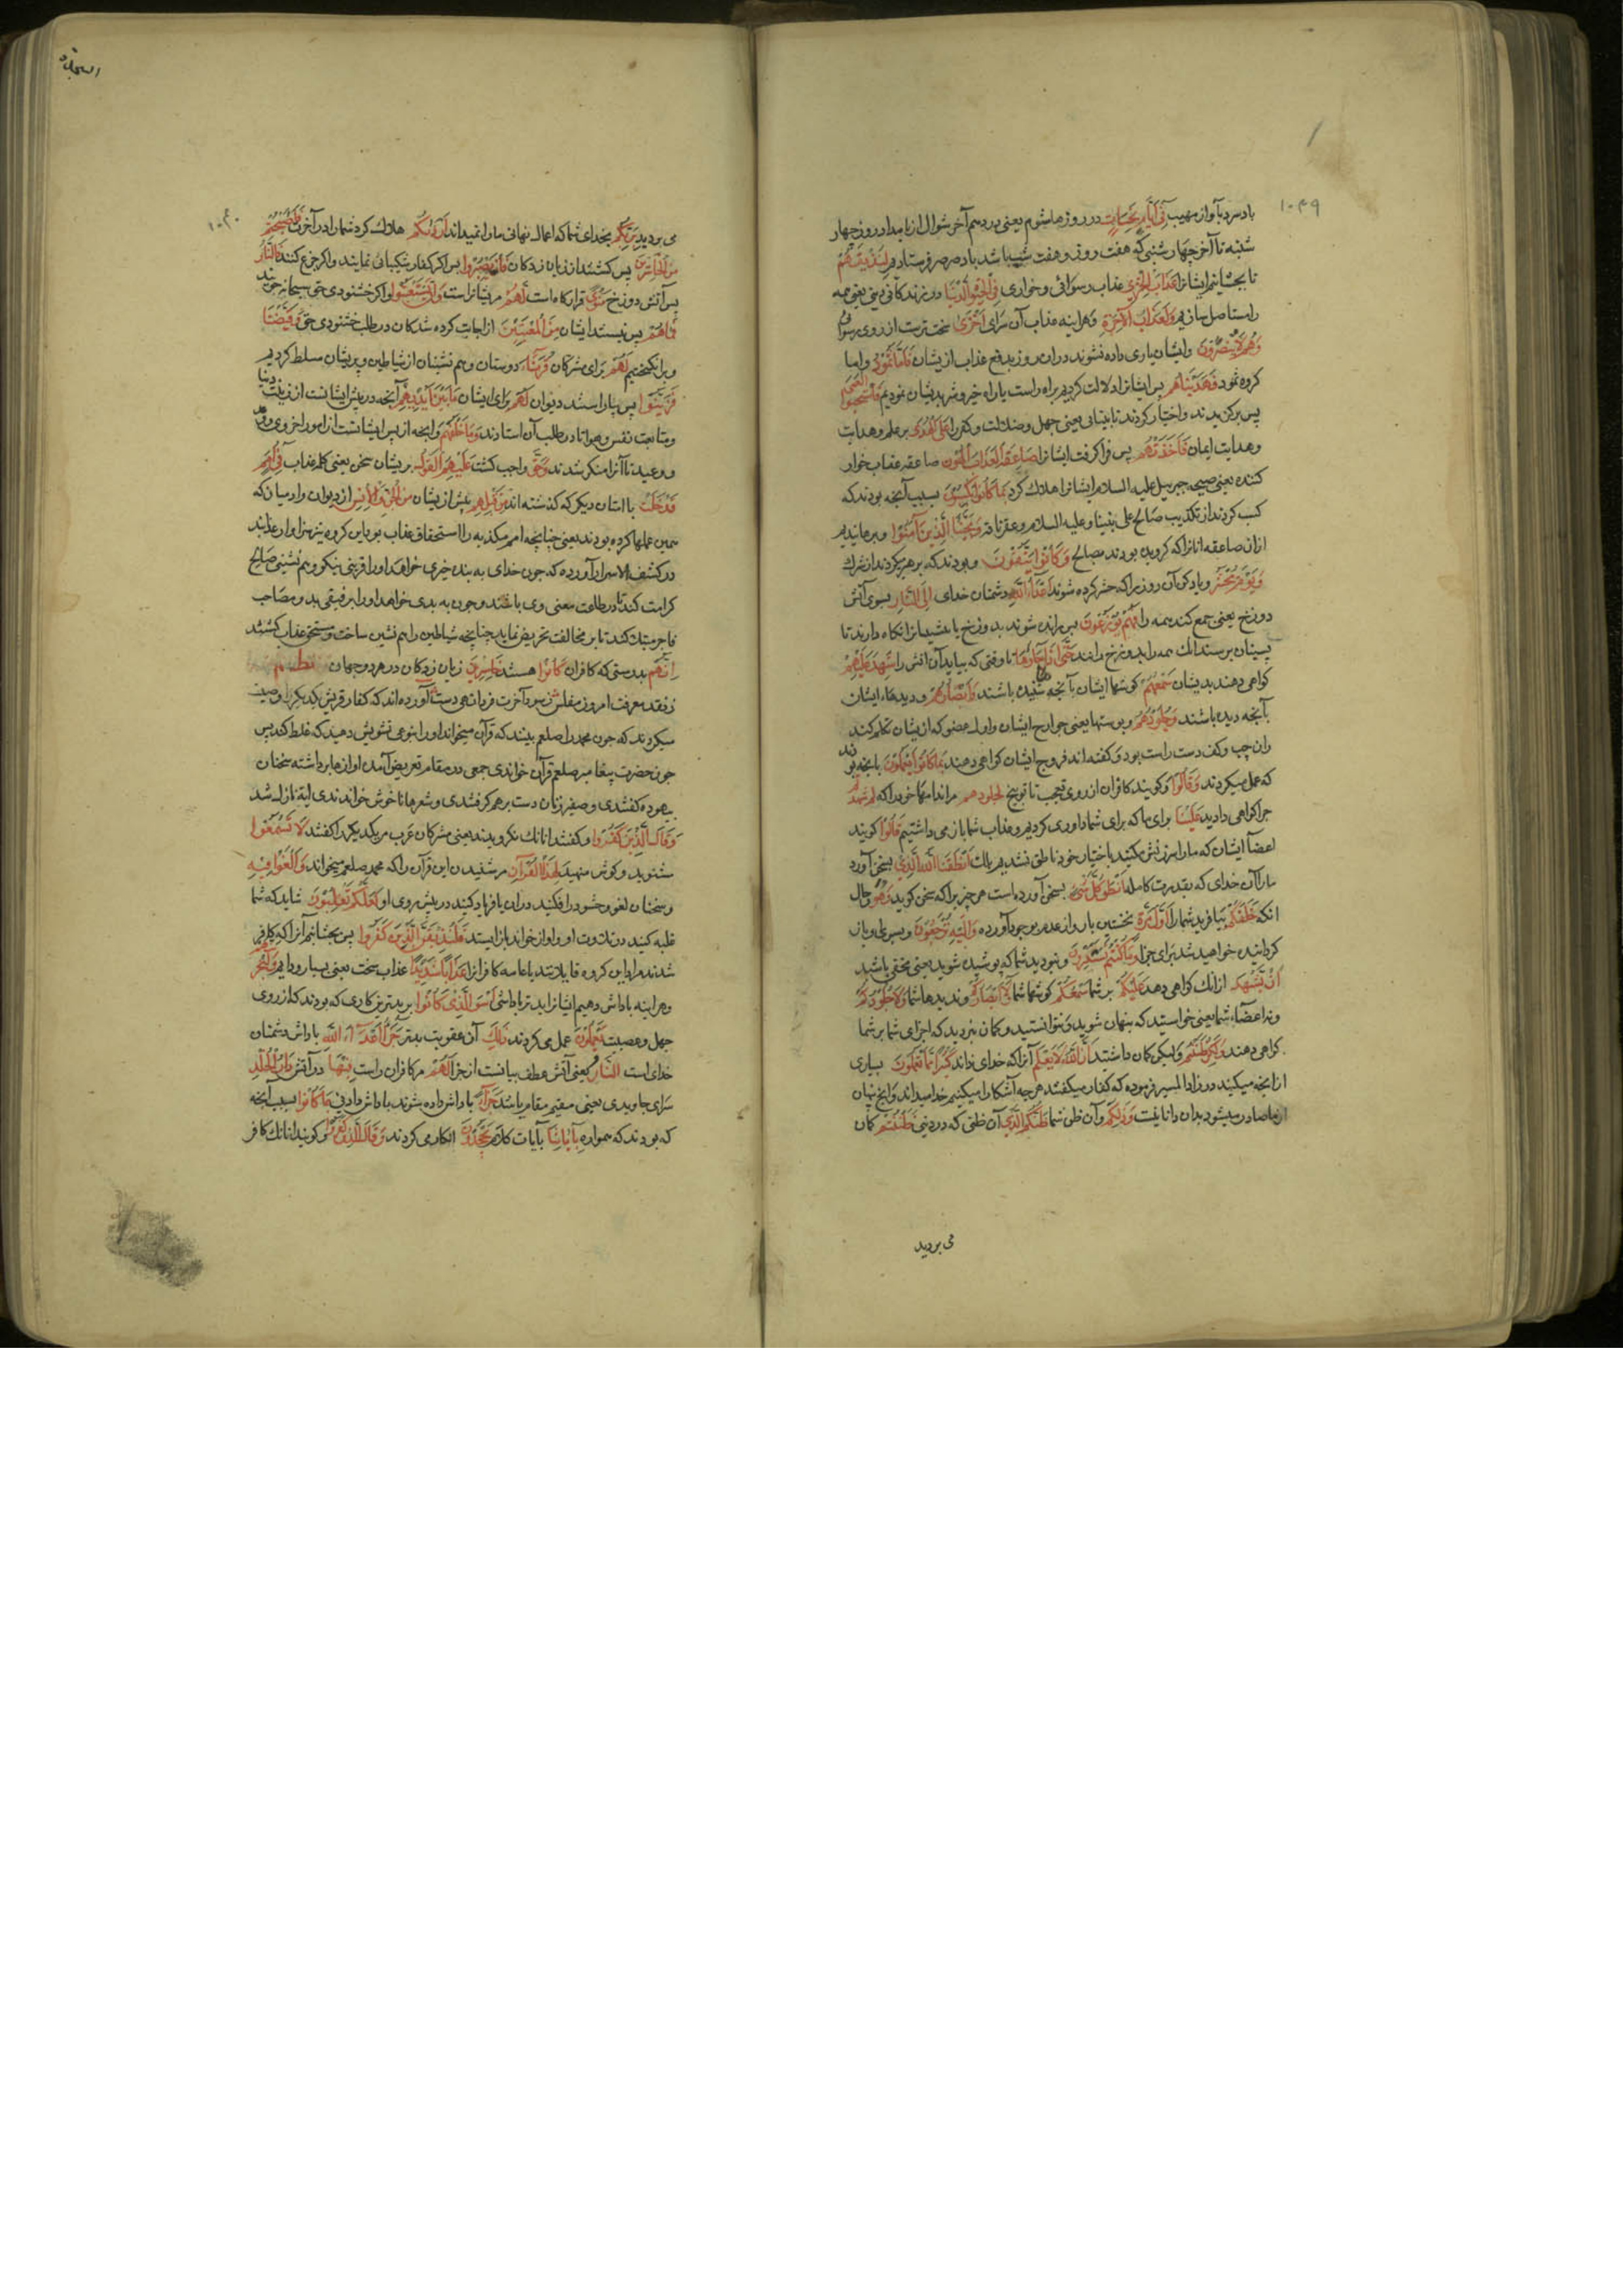 ١٠٣٩
باد سرد باواز مهیب فِي أَيَّامٍ نَحِسَاتٍ در روزها شوم یعنی در دهم آخر شوال از بامداد روز چهار
شنبه تا آخر چهار شنبی که هفت روز و هفت شب باشد باد صرصر فرستادیم لِنُذِيقَهُمْ
تا بچشانیم ایشانرا عَذَابَ الْخِزْيِ عذاب رسوائی و خواری فِي الْحَيٰوةِ الدُّنْيَا در زندکانی دنیا یعنی همه
را مستاصل سازیم وَلَعَذَابُ الْآخِرَةِ وهراینه عذاب آن سرای أَخْزَى سخت ترست از روی رسوائی
وَهُمْ لَا يُنْصَرُونَ وایشان یاری داده نشوند دران روز بدفع عذاب از یشان فَأَمَّا ثَمُودُ واما
کروه ثمود فَهَدَيْنَاهُمْ پس ایشانرا دلالت کردیم براه راست یا راه خیر و شر بدیشان نمودیم فَاسْتَحَبُّوا الْعَمَى
پس برکزیدند واختیار کردند نابینایی یعنی جهل وضلالت وکفر را عَلَى الْهُدَى بر علم وهدایت
وهدایت ایمان فَأَخَذَتْهُمْ پس فرا کرفت ایشانرا صَاعِقَةُ الْعَذَابِ الْهُونِ صاعقه عذاب خوار
کننده یعنی صیحه جبرییل علیه السلام ایشانرا هلاك کرد بِمَا كَانُوا يَكْسِبُونَ بسبب آنچه بودند که
کسب کردند از تکذیب صالح علی نبینا وعلیه السلام وعقر ناقه وَنَجَّيْنَا الَّذِينَ آمَنُوا وبرهانیدیم
ازان صاعقه انانرا که کرویده بودند بصالح وَكَانُوا يَتَّقُونَ وبودند که پرهیز میکردند از شرك
وَيَوْمَ يُحْشَرُ ویاد کن آن روز را که حشر کرده شوند أَعْدَاءُ اللَّهِ دشمنان خدای إِلَى النَّارِ بسوی آتش
دوزخ یعنی جمع کنند همه را فَهُمْ يُوزَعُونَ پس رانده شوند بدوزخ یا پیشینانرا نکاه دارند تا
پسینان برسند انك همه را بدوزخ رانند حَتَّى إِذَا مَا جَاءُوهَا تا وقتی که بیایند آن اتش را شَهِدَ عَلَيْهِمْ
کواهی دهند بدیشان سَمْعُهُمْ کوشها ایشان بآنچه شنیده باشند وَأَبْصَارُهُمْ ودیدهاء ایشان
بآنچه دیده باشند وَجُلُودُهُمْ وپوستها یعنی جوارح ایشان واول عضو که از یشان تکلم کند
ران چپ وکف دست راست بود وکفته اند فروج ایشان کواهی دهند بِمَا كَانُوا يَعْمَلُونَ بانچه بودند
که عمل میکردند وَقَالُوا وکویند کافران از روی تعجب تا توبیخ لِجُلُودِهِمْ مر اندامهاء خود را که لِمَ شَهِدْتُمْ
چرا کواهی دادید عَلَيْنَا برای ما که برای شما داوری کردیم وعذاب شما باز می داشتیم قَالُوا کویند
اعضآ ایشان که ما را سرزنش مکنید باختیار خود ناطق نشدیم بلك أَنْطَقَنَا اللَّهُ الَّذِي بسخن آورد
ما را آن خدای که بقدرت کامله أَنْطَقَ كُلَّ شَيْءٍ بسخن آورده است هر چیز را که سخن کوید وَهُوَ وحال
انکه خَلَقَكُمْ بیافرید شما را أَوَّلَ مَرَّةٍ نخستین بار واز عدم بوجود آورده وَإِلَيْهِ تُرْجَعُونَ وبسوی او باز
کردانیده خواهید شد برای جزا وَمَا كُنْتُمْ تَسْتَتِرُونَ ونبودید شما که پوشیده شوید یعنی مخفی باشید
أَنْ يَشْهَدَ ازانك کواهی دهد عَلَيْكُمْ بر شما سَمْعُكُمْ کوشها شما وَلَا أَبْصَارُكُمْ ونه دیدها شما وَلَا جُلُودُكُمْ
ونه اعضآء شما یعنی خواستید که پنهان شوید ونتوانستید وکمان نبردید که اجزای شما بر شما
کواهی دهند وَلَكِنْ ظَنَنْتُمْ ولیکن کمان داشتید أَنَّ اللَّهَ لَا يَعْلَمُ آنرا که خدای نداند كَثِيرًا مِمَّا تَعْمَلُونَ بسیاری
از انچه میکنید در زاد المسیر فرموده که کفار میکفتند هر چه آشکارا میکنیم خدا میداند وانچه نهان
از ما صادر میشود بدان دانا نیست وَذَلِكُمْ وآن ظن شما ظَنُّكُمُ الَّذِي آن ظنی که در دنیی ظَنَنْتُمْ کمان
می بردید
السجدة
١٠٤٠
می بردید بِرَبِّكُمْ بخدای شما که اعمال نهانی ما را نمیداند أَرْدَاكُمْ هلاك کرد شما را در آخرت فَأَصْبَحْتُمْ
مِنَ الْخَاسِرِينَ پس کشتند از زیان زدکان فَإِنْ يَصْبِرُوا پس اکر کفار شکیبائی نمایند واکر جزع کنند فَالنَّارُ
پس آتش دوزخ مَثْوًى قرارکاه است لَهُمْ مریشانراست وَإِنْ يَسْتَعْتِبُوا واکر خشنودی حق سبحانه جویند
فَمَا هُمْ پس نیستند ایشان مِنَ الْمُعْتَبِينَ از اجابت کرده شدکان در طلب خشنودی حق وَقَيَّضْنَا
وبرانکیختیم لَهُمْ برای مشرکان قُرَنَاءَ دوستان وهم نشینان از شیاطین وبریشان مسلط کردیم
فَزَيَّنُوا پس بیاراستند دیوان لَهُمْ برای ایشان مَا بَيْنَ أَيْدِيهِمْ آنچه در پیش ایشانست از زینت دنیا
ومتابعت نفس وهوا تا در طلب آن استادند وَمَا خَلْفَهُمْ وانچه از پس ایشانست از امور اخروی
ووعید تا آنرا منکر شدند وَحَقَّ واجب کشت عَلَيْهِمُ الْقَوْلُ بریشان سخن یعنی کلمه عذاب فِي أُمَمٍ
قَدْ خَلَتْ با امتان دیکر که کذشته اند مِنْ قَبْلِهِمْ پیش از یشان مِنَ الْجِنِّ وَالْإِنْسِ از دیوان وادمیان که
همین عملها کرده بودند یعنی چنانچه امم مکذبه را استحقاق عذاب بود این کروه نیز سزاوار عذابند
در کشف الاسرار آورده که چون خدای به بنده خیری خواهد او را قرینی نیکو وهم نشینی صالح
کرامت کند تا در طاعت معنی وی باشند وچون به بدی خواهد او را برفیقی بد ومصاحب
فاجر مبتلا کند تا بر مخالفت تحریض نماید چنانچه شیاطین را هم نشین ساخت ومستحق عذاب کشتند
إِنَّهُمْ بدرستی که کافران كَانُوا هستند خَاسِرِينَ زیان زدکان در هر دو جهان نظم
ز نقد معرفت امروز مفلس ز سود آخرت فردا تهی دست آورده اند که کفار قریش یکدیکر را وصیت
میکردند که چون محمد را صلعم بینند که قرآن میخواند او را بنوعی تشویش دهید که غلط کند پس
چون حضرت پیغامبر صلعم قرآن خواندی جمعی در مقام تعریض آمدن اوازها برداشته سخنان
بیهوده کفتندی وصفیر زنان دست برهم کرفتندی وشعرها ناخوش خواندندی ایة نازل شد
وَقَالَ الَّذِينَ كَفَرُوا وکفتند انانك نکرویدند یعنی مشرکان عرب مر یکدیکر را کفتند لَا تَسْمَعُوا
مشنوید وکوش منهید لِهَذَا الْقُرْآنِ مر شنیدن این قرآن را که محمد صلعم میخواند وَالْغَوْا فِيهِ
وسخنان لغو وحشو درافکنید دران یا فریاد کنید در پیش روی او لَعَلَّكُمْ تَغْلِبُونَ شاید که شما
غلبه کنید در تلاوت او واو از خواندن باز ایستد فَلَنُذِيقَنَّ الَّذِينَ كَفَرُوا پس بچشانیم آنرا که کافر
شدند مراد این کروه قایلانند یا عامه کافرانرا عَذَابًا شَدِيدًا عذاب سخت یعنی بسیار ودایم وَلَنَجْزِيَنَّهُمْ
وهراینه پاداش دهیم ایشانرا بدتر پاداشی أَسْوَأَ الَّذِي كَانُوا بر بدترین کاری که بودند که از روی
جهل ومعصیت يَعْمَلُونَ عمل می کردند ذَلِكَ آن عقوبت بدتر جَزَاءُ أَعْدَاءِ اللَّهِ پاداش دشمنان
خدای است النَّارُ یعنی آتش عطف بیانست از جزا لَهُمْ مر کافران راست فِيهَا در آتش دَارُ الْخُلْدِ
سرای جاویدی یعنی مقیم مقام باشد جَزَاءً پاداش داده شوند پاداش دادنی بِمَا كَانُوا بسبب آنچه
که بودند که همواره بِآيَاتِنَا بآیات کلام يَجْحَدُونَ انکار می کردند وَقَالَ الَّذِينَ كَفَرُوا وکویند انانك کافر